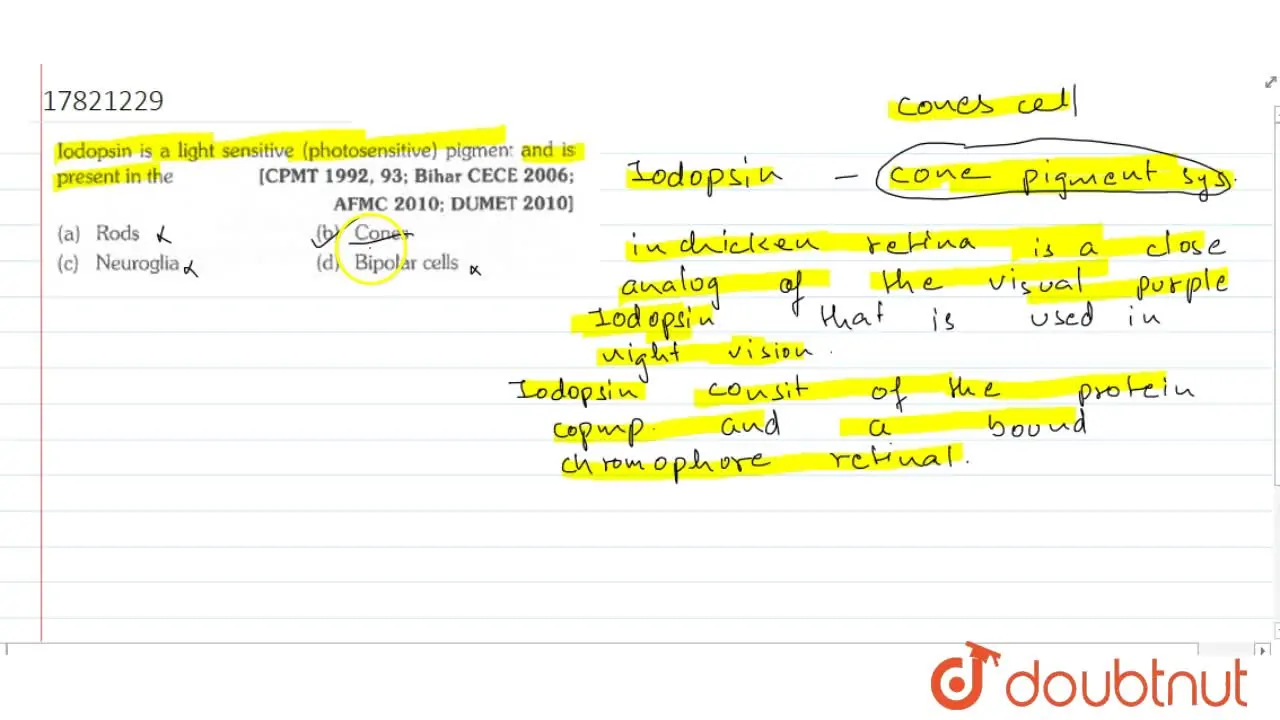 17821229
Iodopsin is a light sensitive (photosensitive) pigment and is
present in the [CPMT 1992, 93; Bihar CECE 2006;
AFMC 2010; DUMET 2010]
(a) Rods
(b) Cones
(c) Neuroglia
(d) Bipolar cells
cones cell
Iodopsin - cone pigment sys.
in chicken retina is a close
analog of the visual purple
Iodopsin that is used in
night vision.
Iodopsin consit of the protein
copmp. and a bound
chromophore retinal.
doubtnut